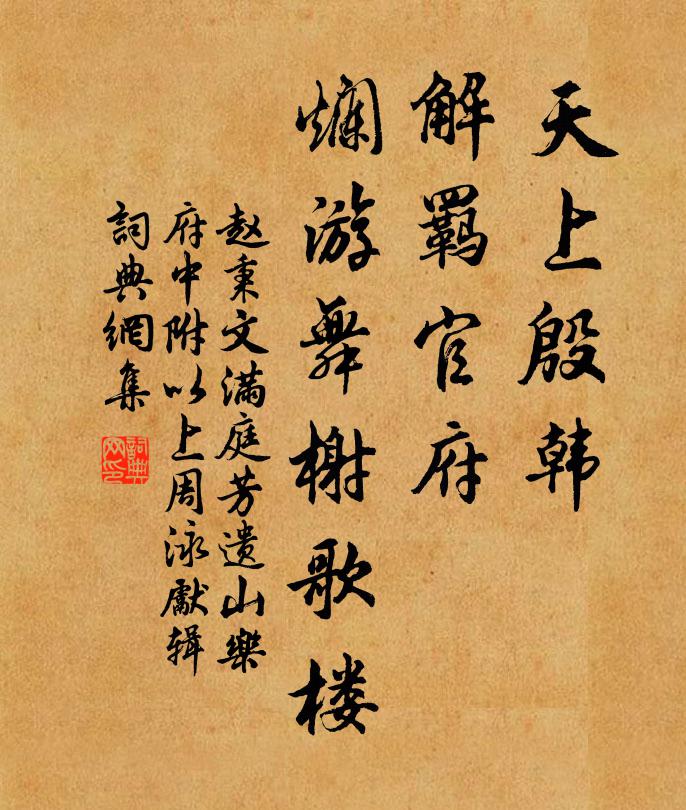 天上殷韩
解羁官府
烂游舞榭歌楼
赵秉文满庭芳遗山樂
府中附以上周泳獻辑
詞典網集
詞典网印